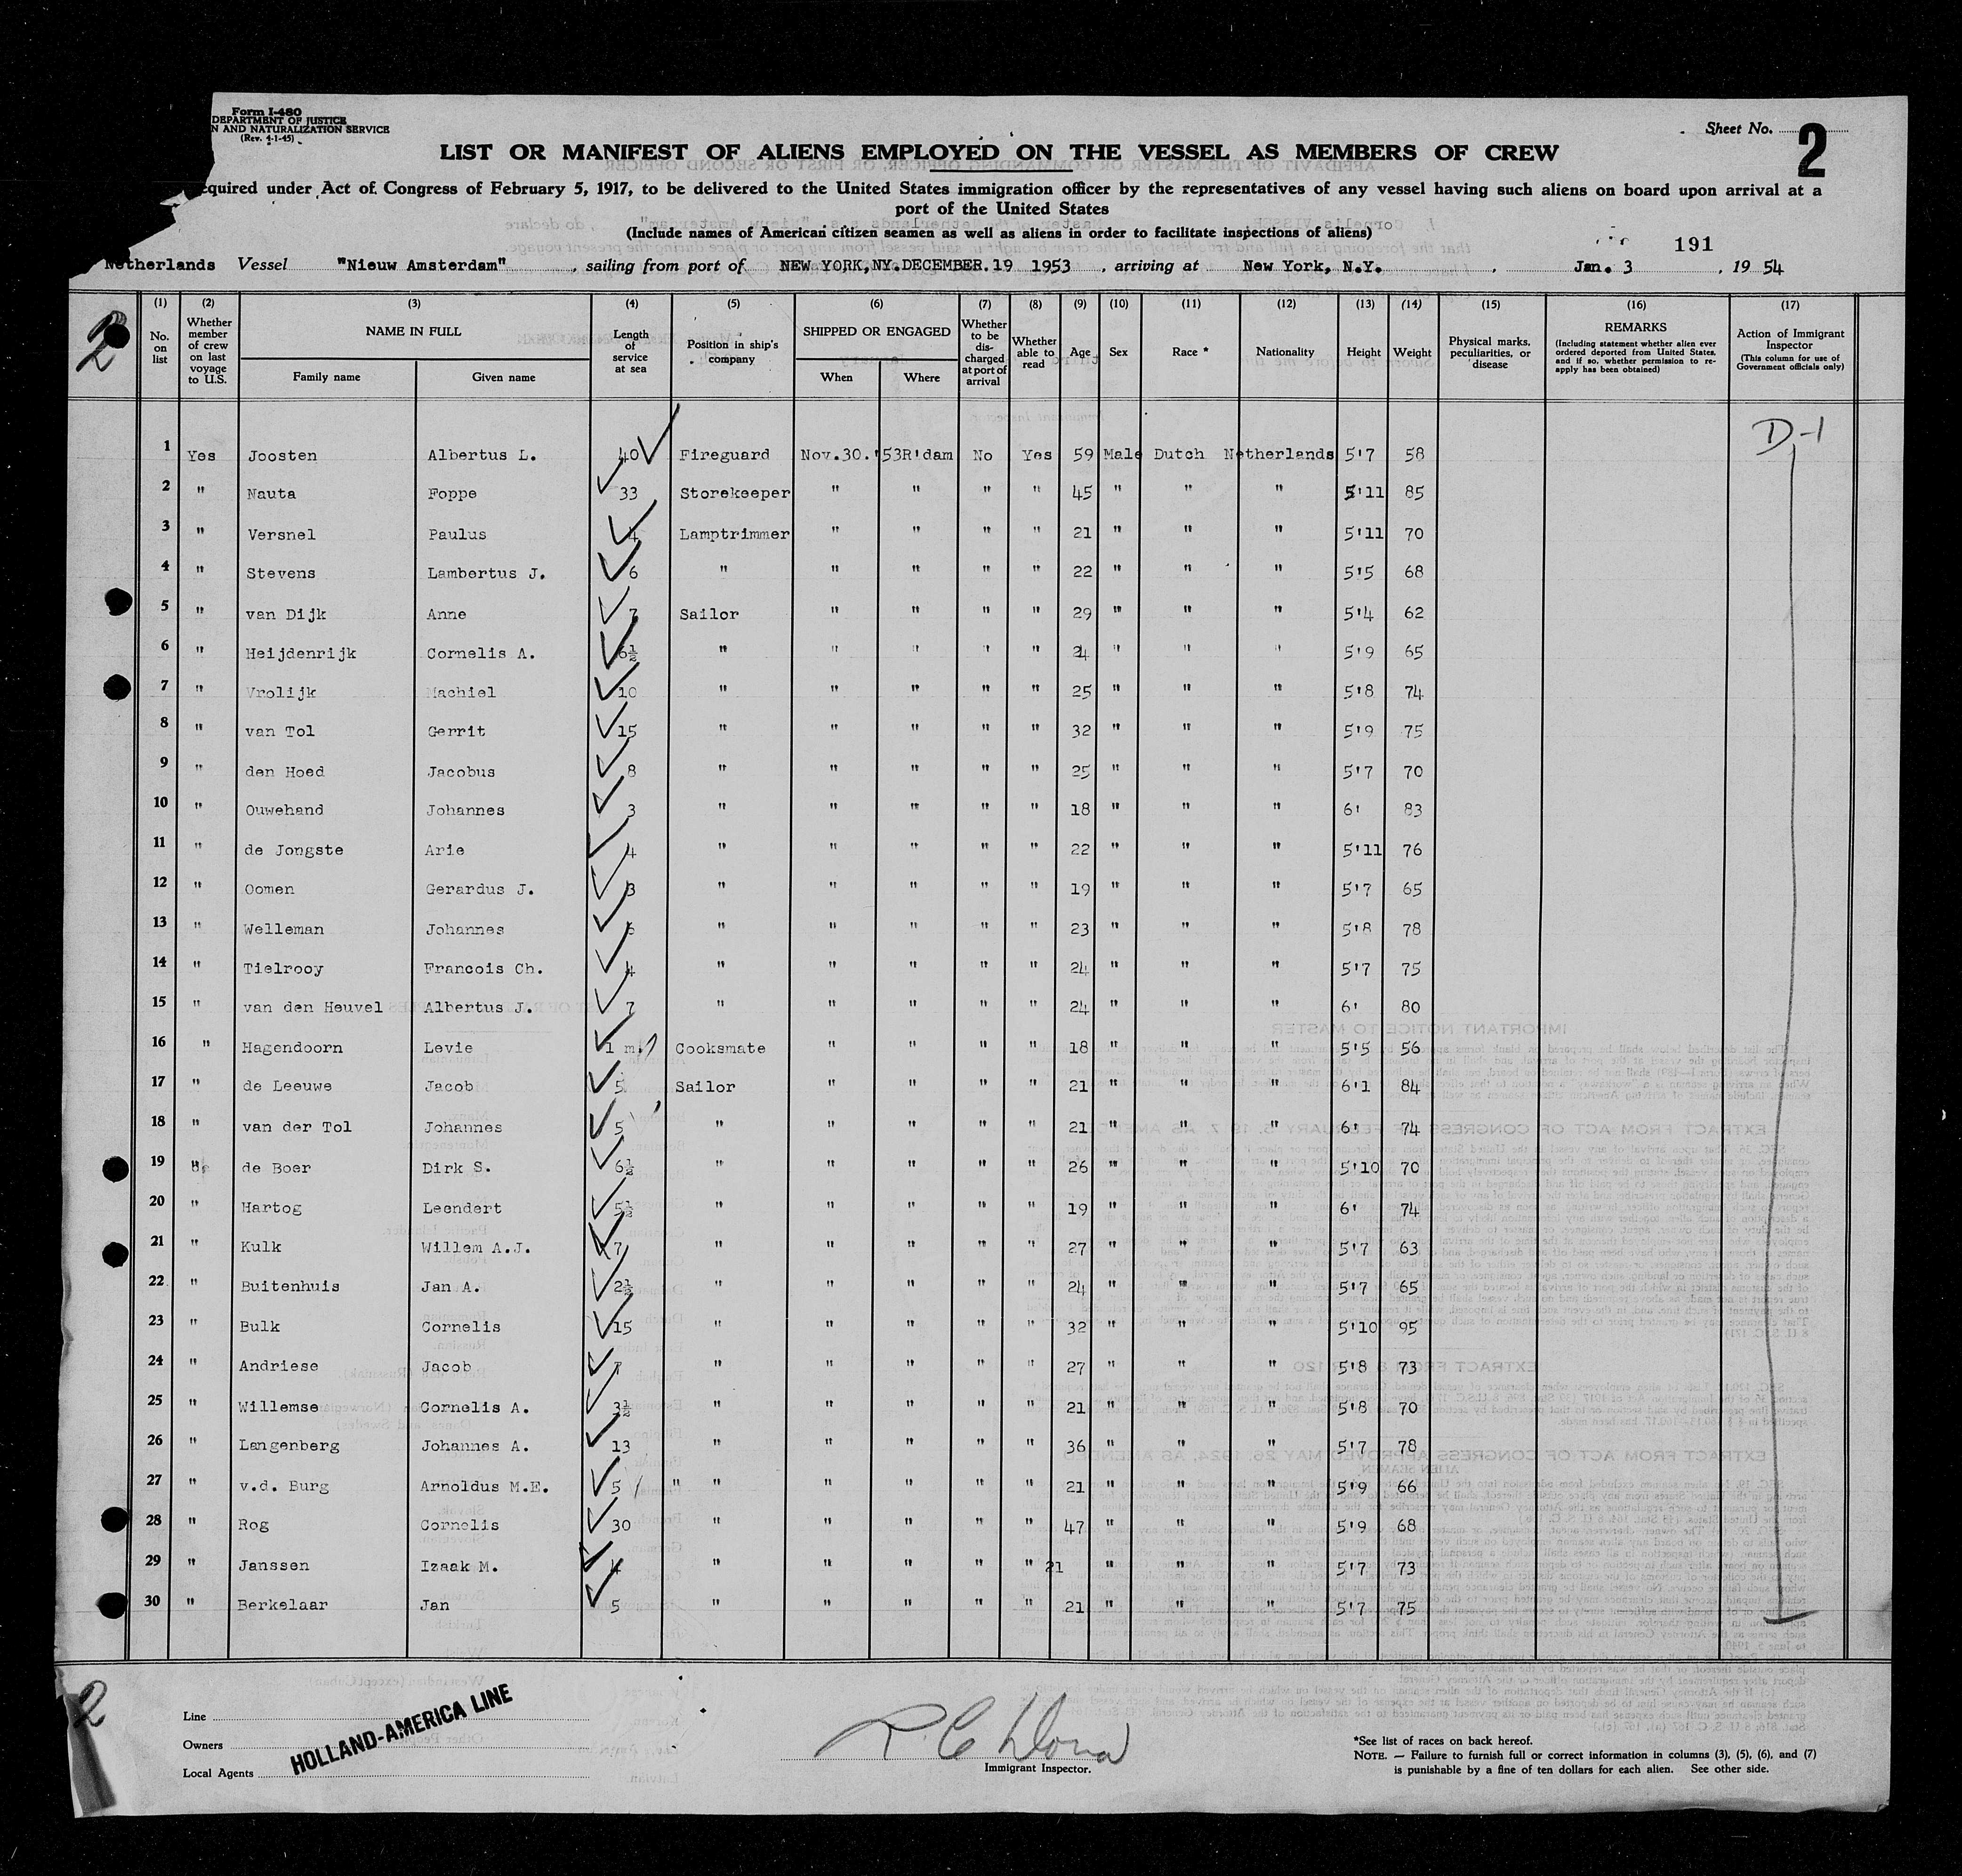 Form I-480
DEPARTMENT OF JUSTICE
N AND NATURALIZATION SERVICE
(Rev. 4-1-45)
Sheet No. 2
LIST OR MANIFEST OF ALIENS EMPLOYED ON THE VESSEL AS MEMBERS OF CREW
equired under Act of Congress of February 5, 1917, to be delivered to the United States immigration officer by the representatives of any vessel having such aliens on board upon arrival at a
port of the United States
(Include names of American citizen seamen as well as aliens in order to facilitate inspections of aliens)
191
Netherlands Vessel "Nieuw Amsterdam", sailing from port of NEW YORK,NY.DECEMBER.19 1953, arriving at New York, N.Y., Jan. 3, 19 54
2
(1) No. on list (2) Whether member of crew on last voyage to U.S. (3) NAME IN FULL Family name Given name (4) Length of service at sea (5) Position in ship's company (6) SHIPPED OR ENGAGED When Where (7) Whether to be discharged at port of arrival (8) Whether able to read (9) Age (10) Sex (11) Race * (12) Nationality (13) Height (14) Weight (15) Physical marks, peculiarities, or disease (16) REMARKS (Including statement whether alien ever ordered deported from United States, and if so, whether permission to re-apply has been obtained) (17) Action of Immigrant Inspector (This column for use of Government officials only)
D-1
1 Yes Joosten Albertus L. 40 Fireguard Nov.30.'53 R'dam No Yes 59 Male Dutch Netherlands 5'7 58
2 " Nauta Foppe 33 Storekeeper " " " " 45 " " " 5'11 85
3 " Versnel Paulus 4 Lamptrimmer " " " " 21 " " " 5'11 70
4 " Stevens Lambertus J. 6 " " " " " 22 " " " 5'5 68
5 " van Dijk Anne 7 Sailor " " " " 29 " " " 5'4 62
6 " Heijdenrijk Cornelis A. 6½ " " " " " 24 " " " 5'9 65
7 " Vrolijk Machiel 10 " " " " " 25 " " " 5'8 74
8 " van Tol Gerrit 15 " " " " " 32 " " " 5'9 75
9 " den Hoed Jacobus 8 " " " " " 25 " " " 5'7 70
10 " Ouwehand Johannes 3 " " " " " 18 " " " 6' 83
11 " de Jongste Arie 4 " " " " " 22 " " " 5'11 76
12 " Oomen Gerardus J. 3 " " " " " 19 " " " 5'7 65
13 " Welleman Johannes " " " " " 23 " " " 5'8 78
14 " Tielrooy Francois Ch. 4 " " " " " 24 " " " 5'7 75
15 " van den Heuvel Albertus J. 7 " " " " " 24 " " " 6' 80
16 " Hagendoorn Levie 1 m. Cooksmate " " " " 18 " " " 5'5 56
17 " de Leeuwe Jacob 5 Sailor " " " " 21 " " " 6'1 84
18 " van der Tol Johannes 5 " " " " " 21 " " " 6' 74
19 " de Boer Dirk S. 6½ " " " " " 26 " " " 5'10 70
20 " Hartog Leendert 5½ " " " " " 19 " " " 6' 74
21 " Kulk Willem A.J. 7 " " " " " 27 " " " 5'7 63
22 " Buitenhuis Jan A. 2½ " " " " " 24 " " " 5'7 65
23 " Bulk Cornelis 15 " " " " " 32 " " " 5'10 95
24 " Andriese Jacob 7 " " " " " 27 " " " 5'8 73
25 " Willemse Cornelis A. 3½ " " " " " 21 " " " 5'8 70
26 " Langenberg Johannes A. 13 " " " " " 36 " " " 5'7 78
27 " v.d. Burg Arnoldus M.E. 5 " " " " " " 21 " " " 5'9 66
28 " Rog Cornelis 30 " " " " " 47 " " " 5'9 68
29 " Janssen Izaak M. 4 " " " " " 21 " " " 5'7 73
30 " Berkelaar Jan 5 " " " " " 21 " " " 5'7 75
2
Line
Owners
Local Agents
HOLLAND-AMERICA LINE
Immigrant Inspector.
*See list of races on back hereof.
NOTE. — Failure to furnish full or correct information in columns (3), (5), (6), and (7)
is punishable by a fine of ten dollars for each alien. See other side.